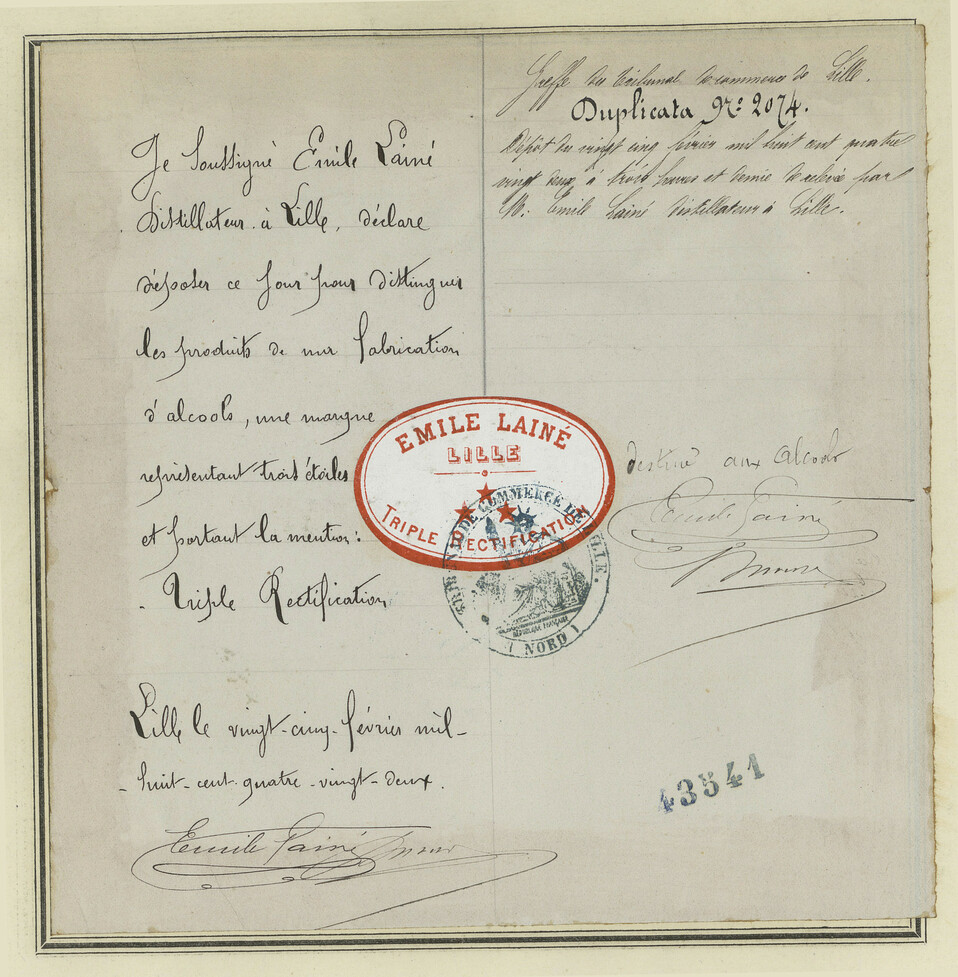 Greffe du tribunal de commerce de Lille.
Duplicata Nº 2074.
Dépôt du vingt cinq février mil huit cent quatre
vingt deux à trois heures et demie de relevée par
M. Emile Lainé distillateur à Lille.
Je soussigné Emile Lainé
Distillateur à Lille, déclare
déposer ce jour pour distinguer
les produits de ma fabrication
d'alcools, une marque
représentant trois étoiles
et portant la mention:
Triple Rectification
Lille le vingt-cinq février mil-
huit-cent-quatre-vingt-deux.
Emile Lainé
EMILE LAINÉ
LILLE
TRIPLE RECTIFICATION
TRIBUNAL DE COMMERCE DE LILLE.
RÉPUBLIQUE FRANÇAISE
(NORD)
destiné aux alcools
Emile Lainé
43541